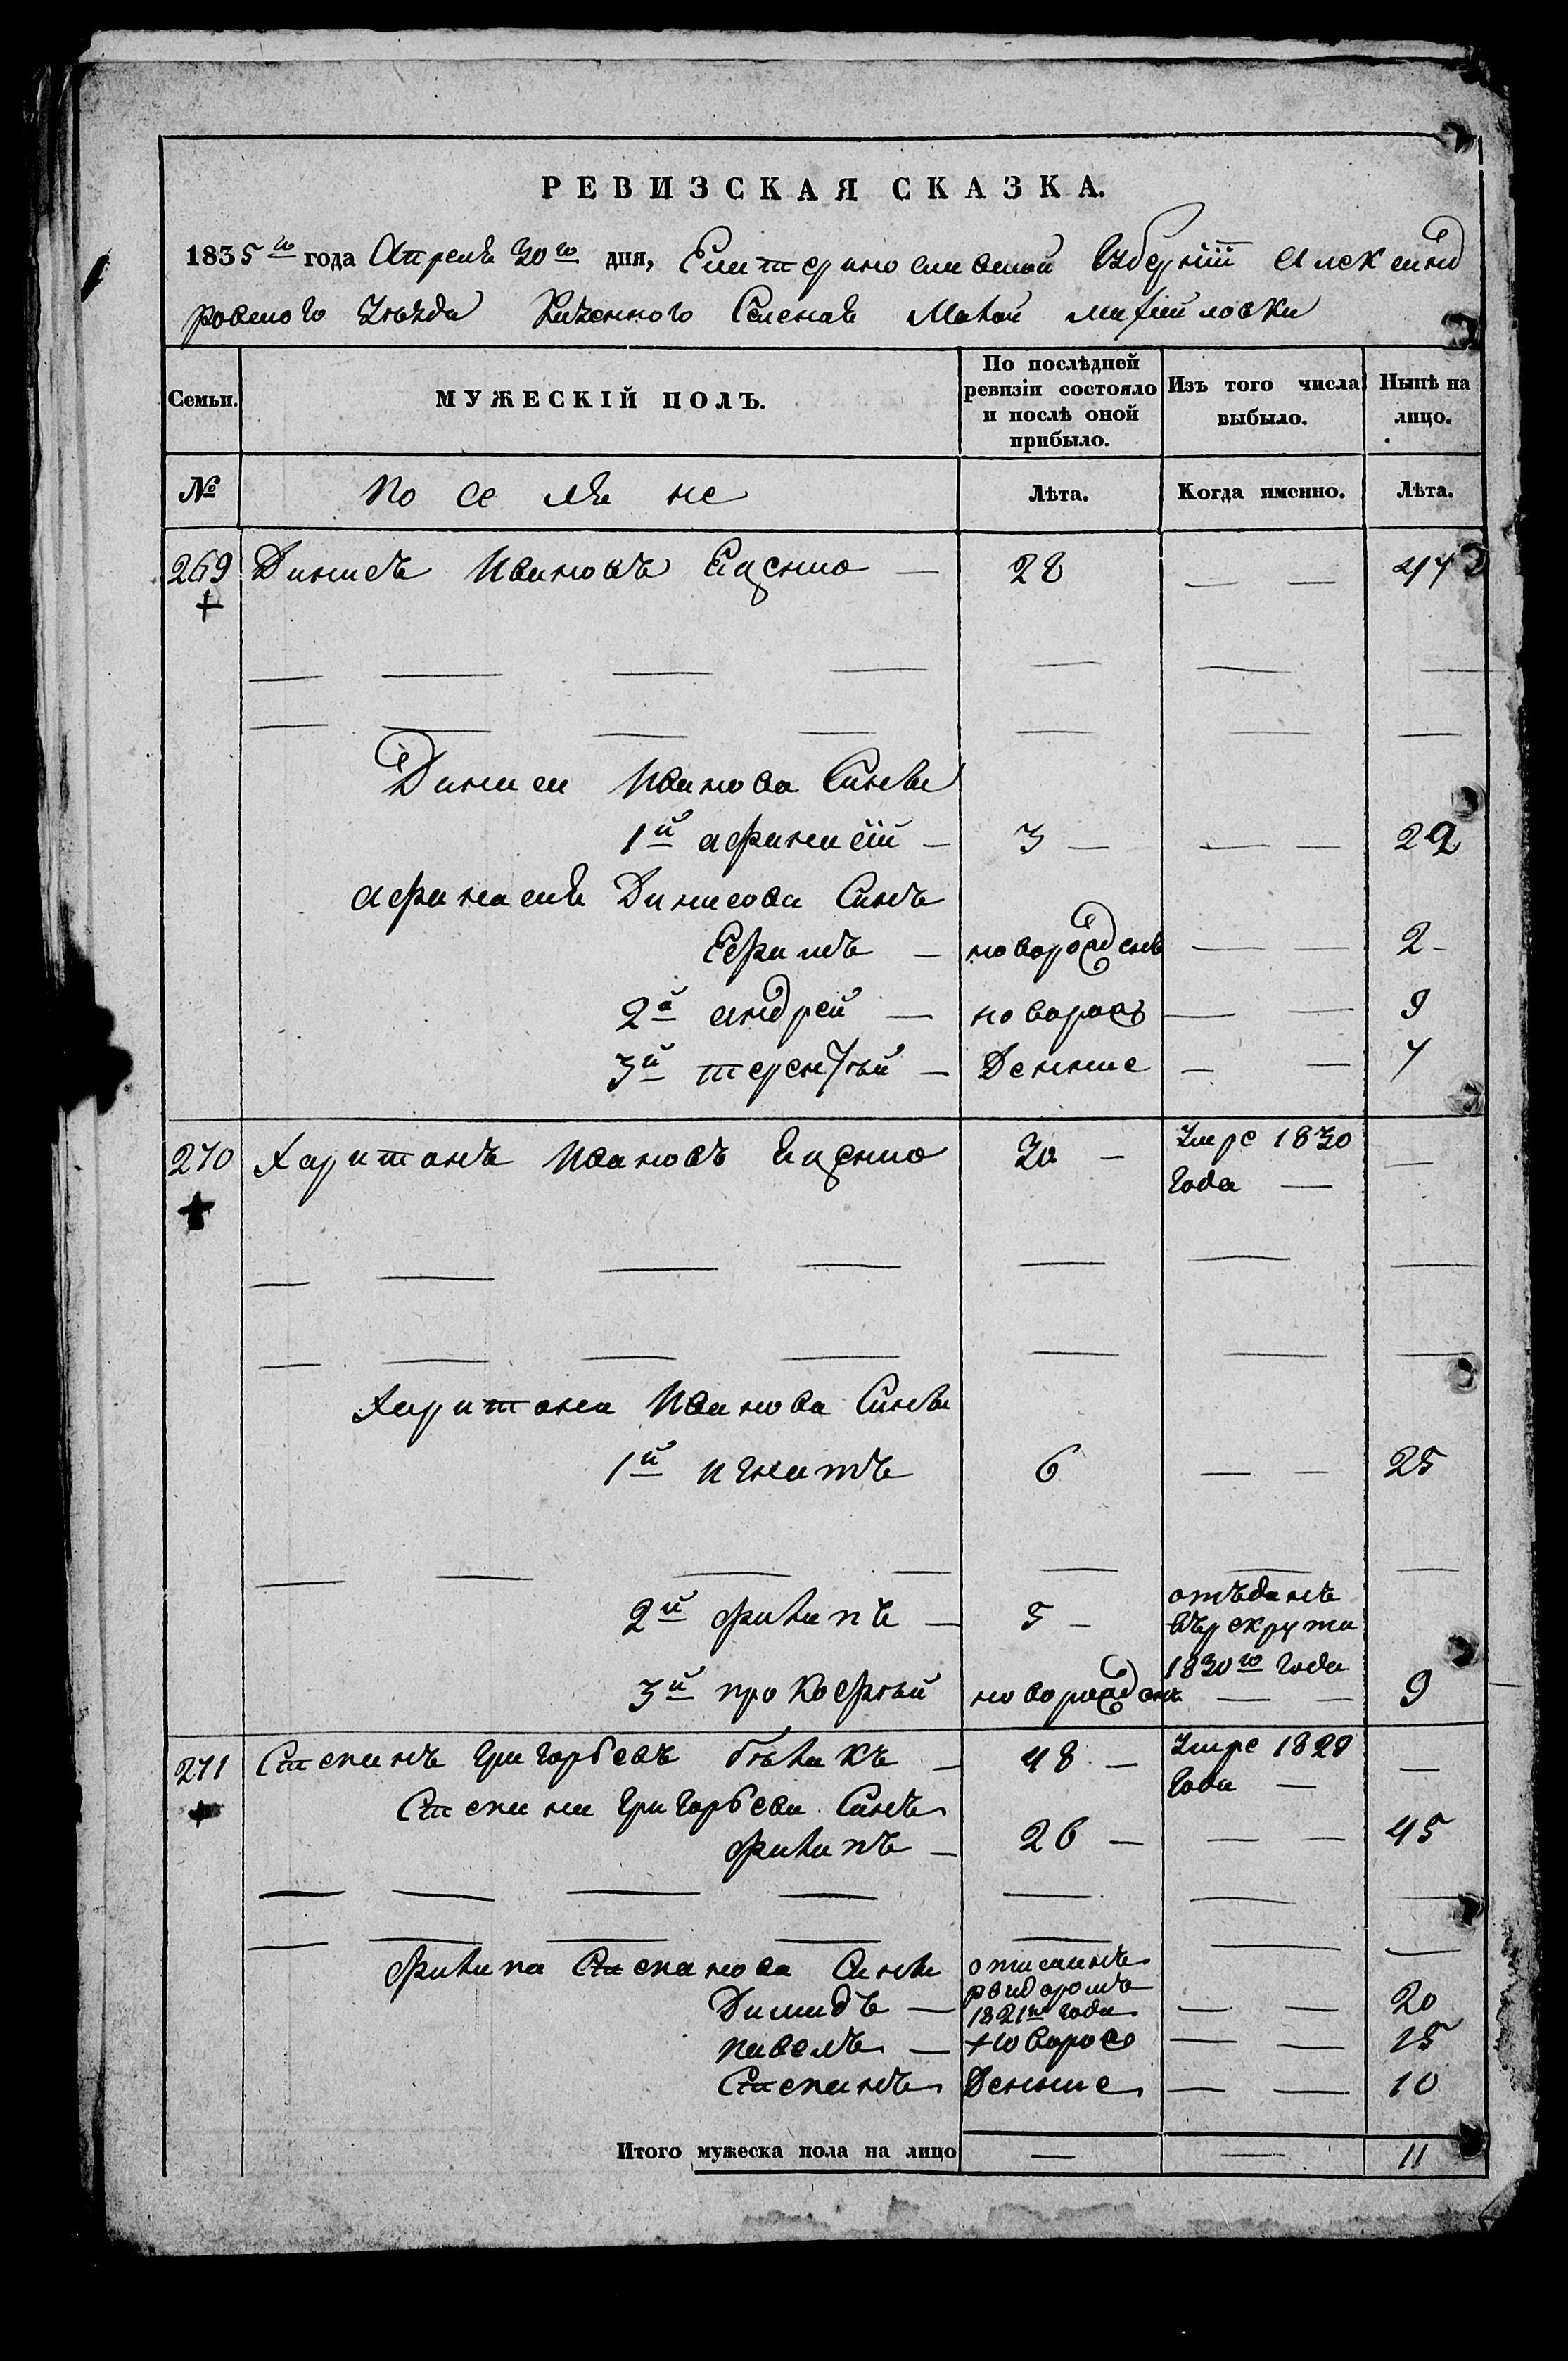 РЕВИЗСКАЯ СКАЗКА.
1835го года Апреля 30го дня, Екатеринославской Губернiи Александ
ровского Уѣзда Казенного Селенiя Малой михайловки
Семьи. МУЖЕСКІЙ ПОЛЪ. По послѣдней ревизіи состояло и послѣ оной прибыло. Изъ того числа выбыло. Нынѣ на лицо.
№ по се ля не Лѣта. Когда именно. Лѣта.
269 Данилъ Ивановъ — 28 — — 47
Данила Иванова Синове
1й афанасiй — 3 — — — 22
афанасия Данилова Синъ
Ефимъ — новорожденъ — — 2 -
2й андрей — новорож — — 9
3й терентѣй — Денние — — 7
270 Харитонъ Ивановъ 30 — Умре 1830 года — —
Харитона Иванова Синове
1й игнатъ 6 — — 25
2й филипъ — 5 — отъданъ въ рекрути 1830го года
3й прокофѣй новорожденъ — — 9
271 Степанъ Григорьевъ бѣликъ — 48 — Умре 1829 года — —
Степана Григорьева Синъ
филипъ — 26 — — — 45
филипа Степанова Синове
Демидъ — 1821го года — — 20
павелъ — новорож — — 15
Степанъ Денние — — 10
Итого мужеска пола на лицо — — 11